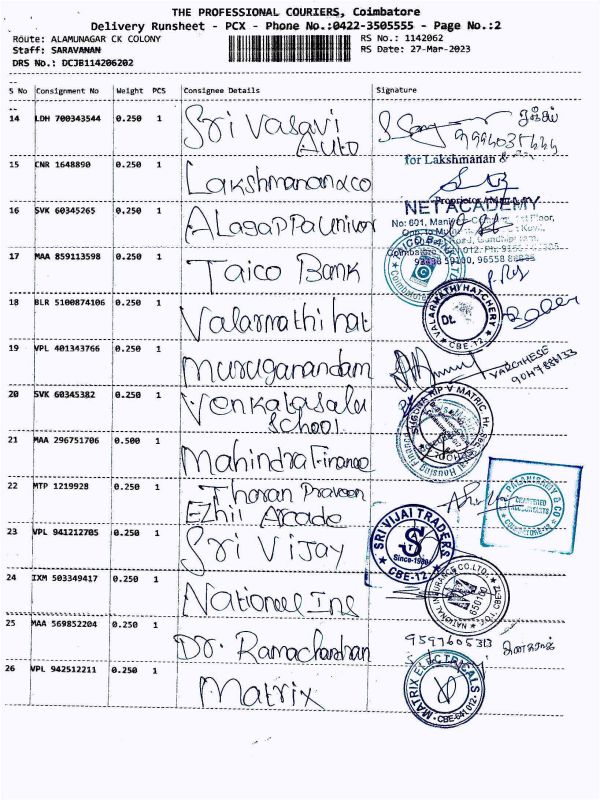 THE PROFESSIONAL COURIERS, Coimbatore
Delivery Runsheet - PCX - Phone No.:0422-3505555 - Page No.:2
Route: ALAMUNAGAR CK COLONY
RS No.: 1142062
Staff: SARAVANAN
RS Date: 27-Mar-2023
DRS No.: DCJB114206202
S No Consignment No Weight PCS Consignee Details Signature
14 LDH 700343544 0.250 1 Sri Vasavi
Auto
15 CNR 1648890 0.250 1 Lakshmanan & co
for Lakshmanan &
16 SVK 60345265 0.250 1 Alagappa Univer
NET ACADEMY
17 MAA 859113598 0.250 1 Taico Bank
18 BLR 5100874106 0.250 1 Valarmathi hat
VALARMATHI HATCHERY
CBE-12
19 VPL 401343766 0.250 1 Muruganandam
VARGHESE
20 SVK 60345382 0.250 1 Venkatasala
School
21 MAA 296751706 0.500 1 Mahindra Finance
22 MTP 1219928 0.250 1 Tharan Praveen
Ezhil Arcade
CHARTERED
ACCOUNTANTS
23 VPL 941212705 0.250 1 Sri Vijay
SRI VIJAI TRADERS
Since-1980
CBE-12
24 IXM 503349417 0.250 1 National Ins
NATIONAL INSURANCE CO.LTD.
25 MAA 569852204 0.250 1 Dr. Ramachandran
9597605313
26 VPL 942512211 0.250 1 Matrix
MATRIX ELECTRICALS
CBE-641 012